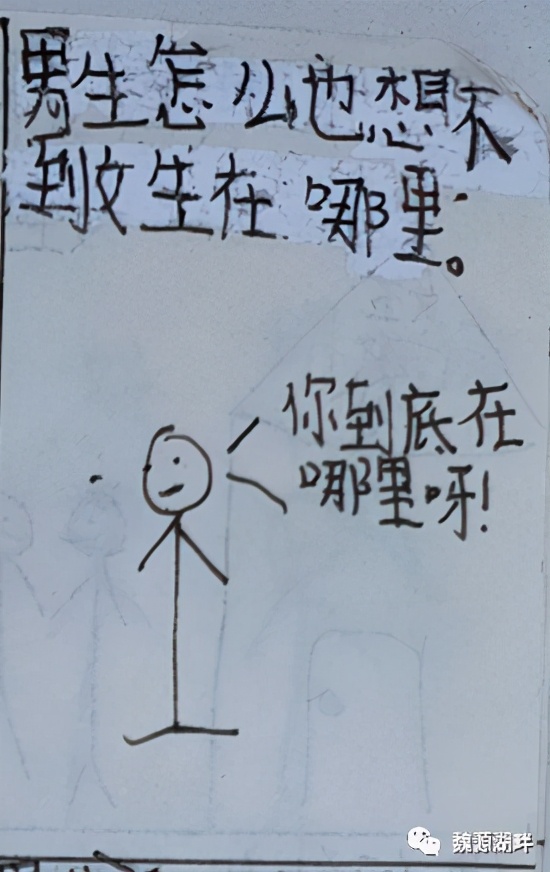 男生怎么也想不
到女生在哪里。
你到底在
哪里呀!
魏源湖畔